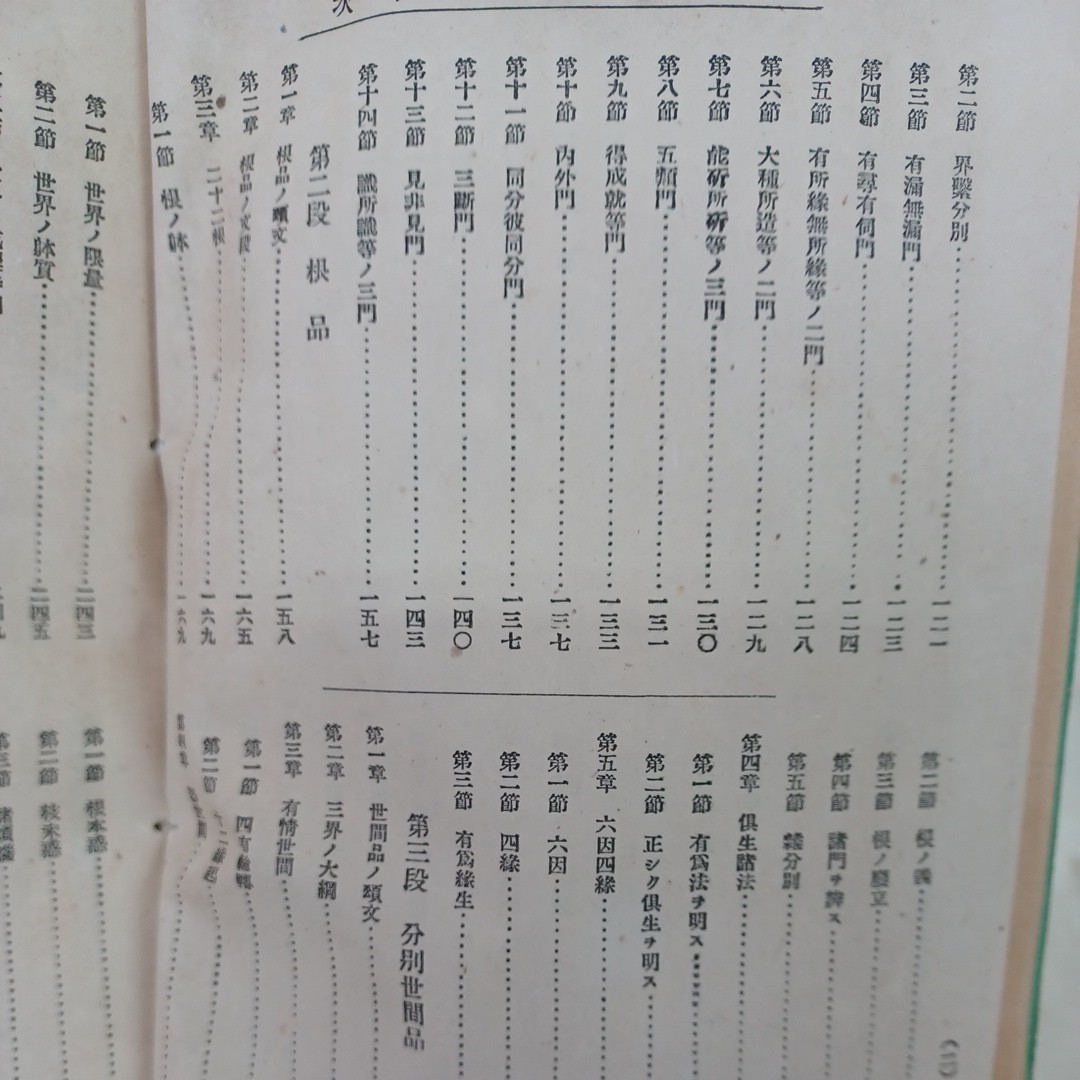 次
第二節 界繫分別 一二一
第三節 有漏無漏門 一二三
第四節 有尋有伺門 一二四
第五節 有所緣無所緣等ノ二門 一二八
第六節 大種所造等ノ二門 一二九
第七節 能斫所斫等ノ三門 一三〇
第八節 五類門 一三一
第九節 得成就等門 一三三
第十節 內外門 一三七
第十一節 同分彼同分門 一三七
第十二節 三斷門 一四〇
第十三節 見非見門 一四三
第十四節 識所識等ノ三門 一五七
第二段 根品
第一章 根品ノ頌文 一五八
第二章 根品ノ文段 一六五
第三章 二十二根 一六九
第一節 根ノ躰 一六九
第二節 根ノ義
第三節 根ノ廢立
第四節 諸門ヲ辨ス
第五節 雜分別
第四章 俱生諸法
第一節 有爲法ヲ明ス
第二節 正シク俱生ヲ明ス
第五章 六因四緣
第一節 六因
第二節 四緣
第三節 有爲緣生
第三段 分別世間品
第一章 世間品ノ頌文
第二章 三界ノ大綱
第三章 有情世間
第一節 四有
第二節
(一)
第一節 世界ノ限量 二四三
第二節 世界ノ躰質 二四五
第一節 根本惑
第二節 枝末惑
第三節